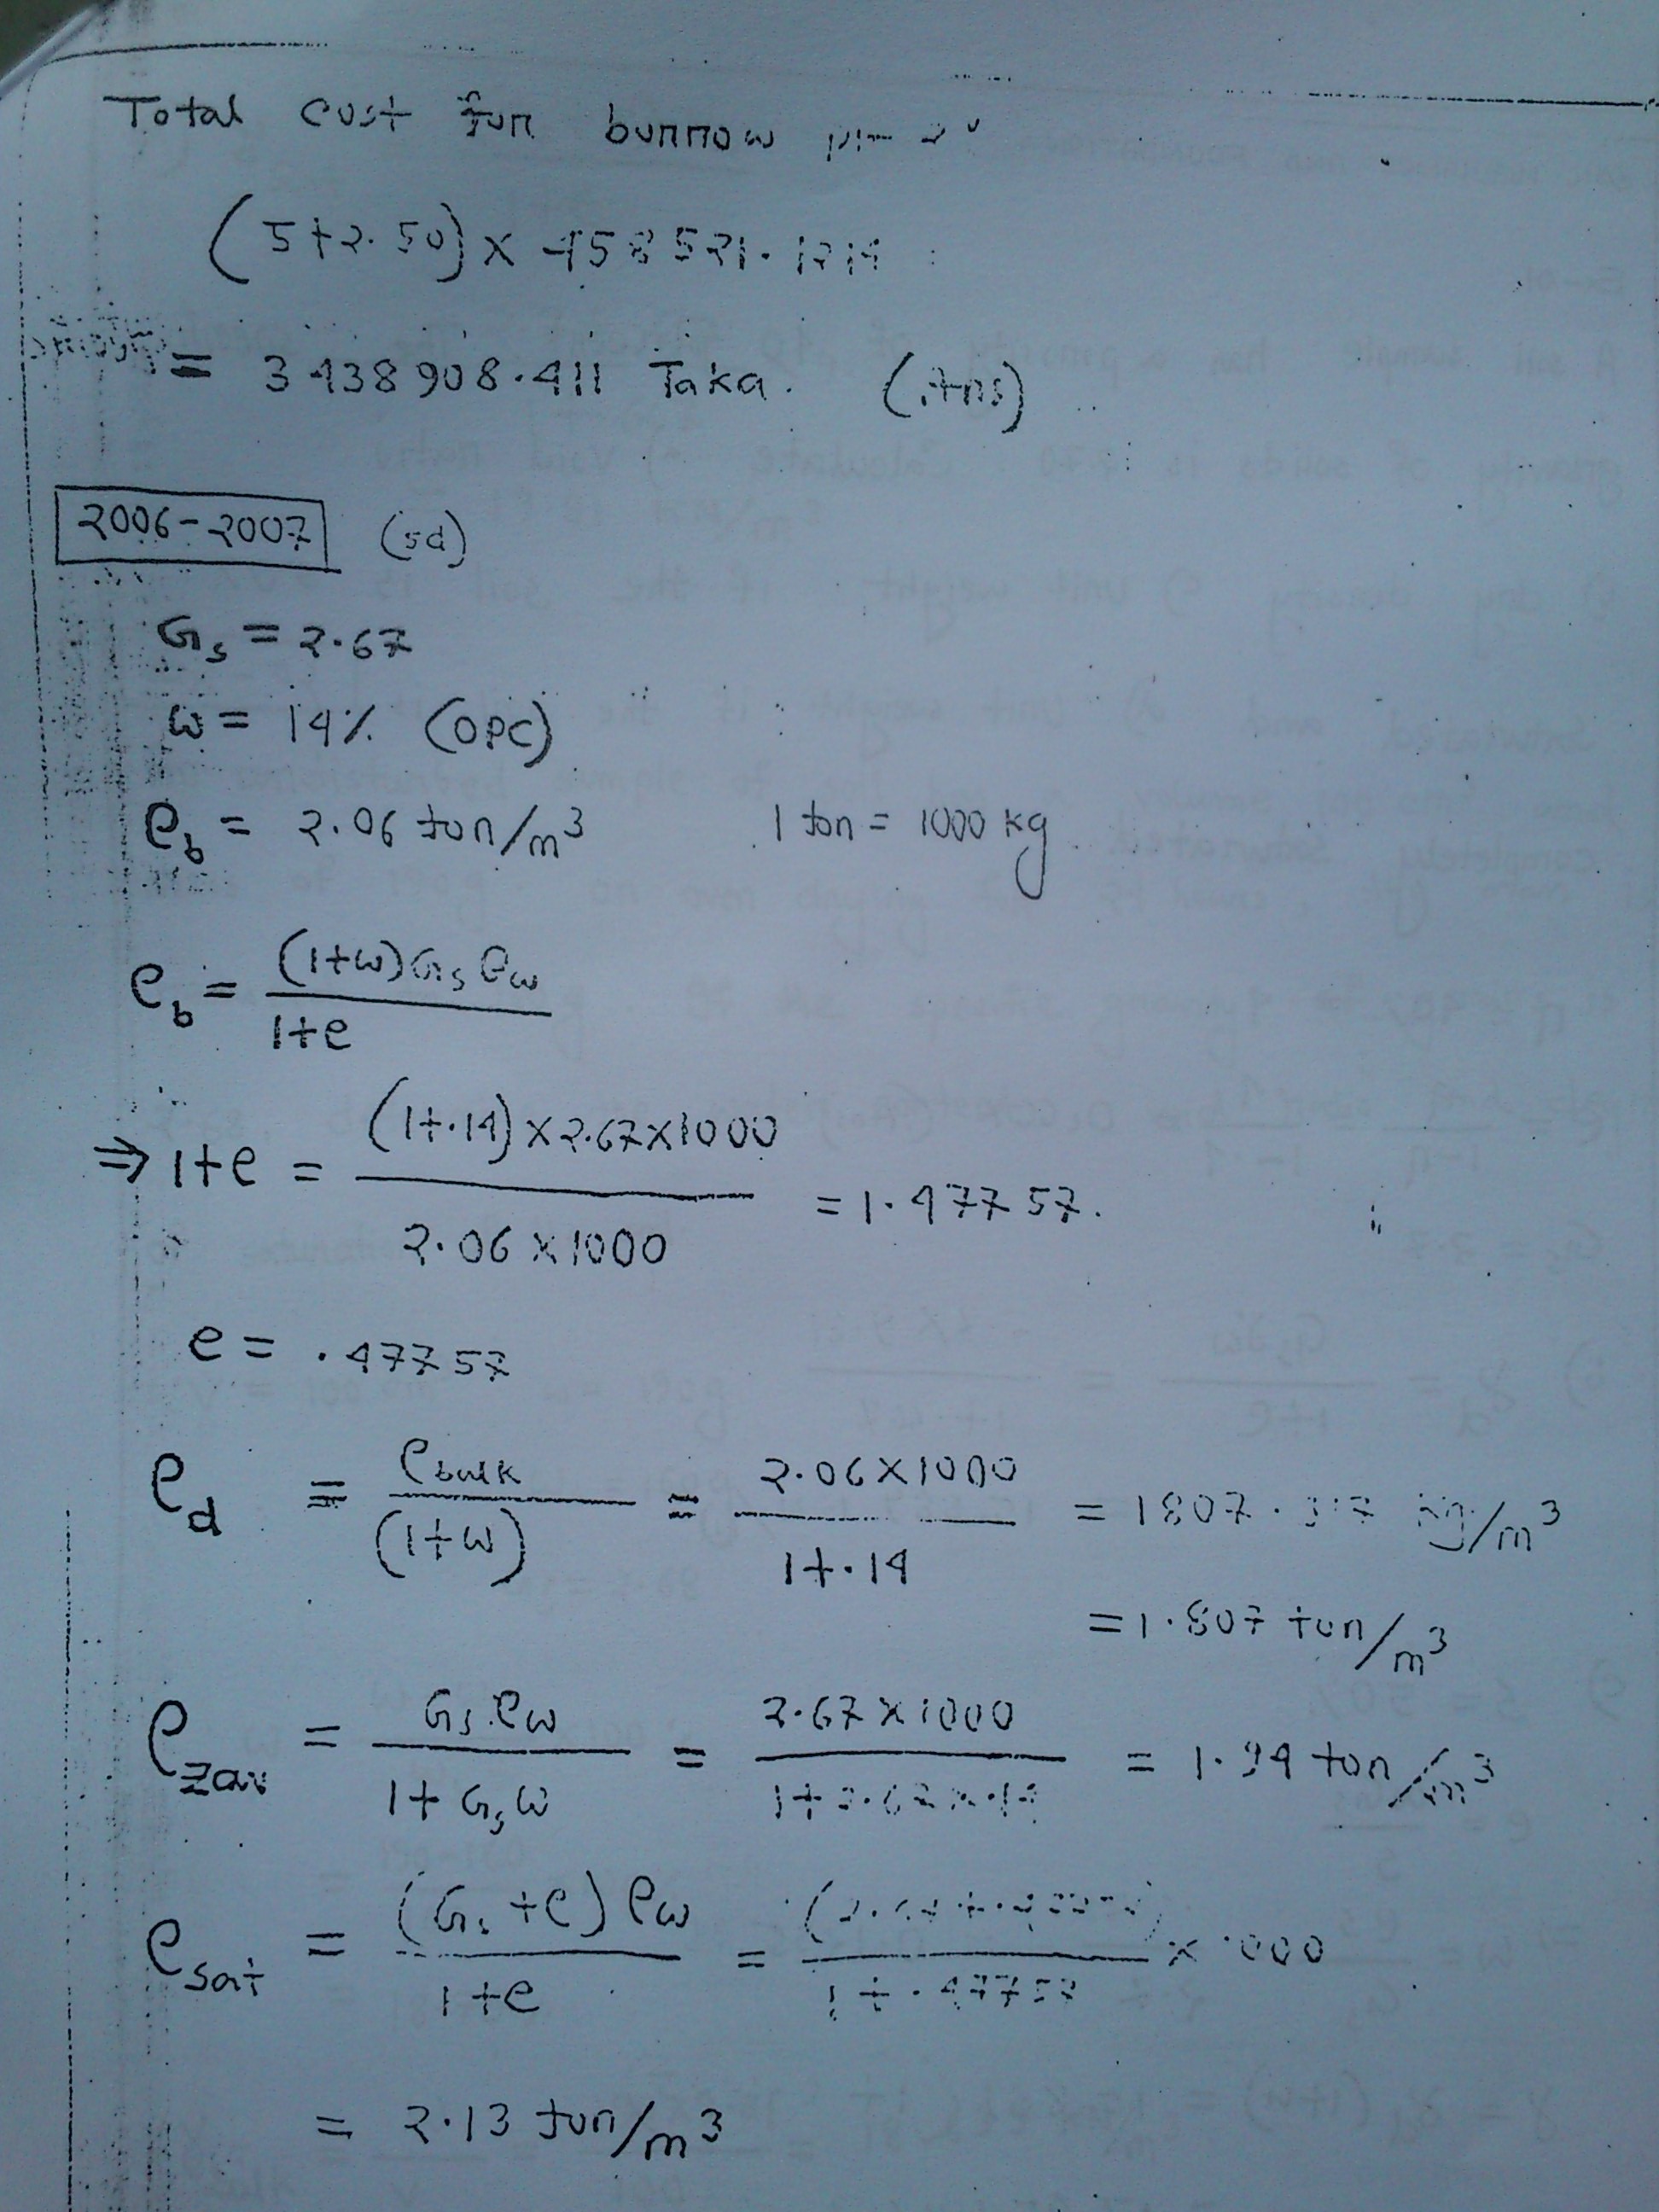 Total cost for borrow
(5+2.50) × 458521.1214
= 3438908.411 Taka. (Ans)
2006-2007 (5d)
Gs = 2.67
ω = 14% (OPC)
ρb = 2.06 ton/m³ 1 ton = 1000 kg
ρb = (1+ω)Gs ρω / 1+e
⇒ 1+e = (1+.14)×2.67×1000 / 2.06×1000 = 1.47757.
e = .47757
ρd = ρbulk / (1+ω) = 2.06×1000 / 1+.14 = 1807.017 kg/m³
= 1.807 ton/m³
ρzav = Gs.ρω / 1+Gsω = 2.67×1000 / 1+2.67×.14 = 1.94 ton/m³
ρsat = (Gs+e)ρω / 1+e = (2.67+.47757) / 1+.47757 × 1000
= 2.13 ton/m³